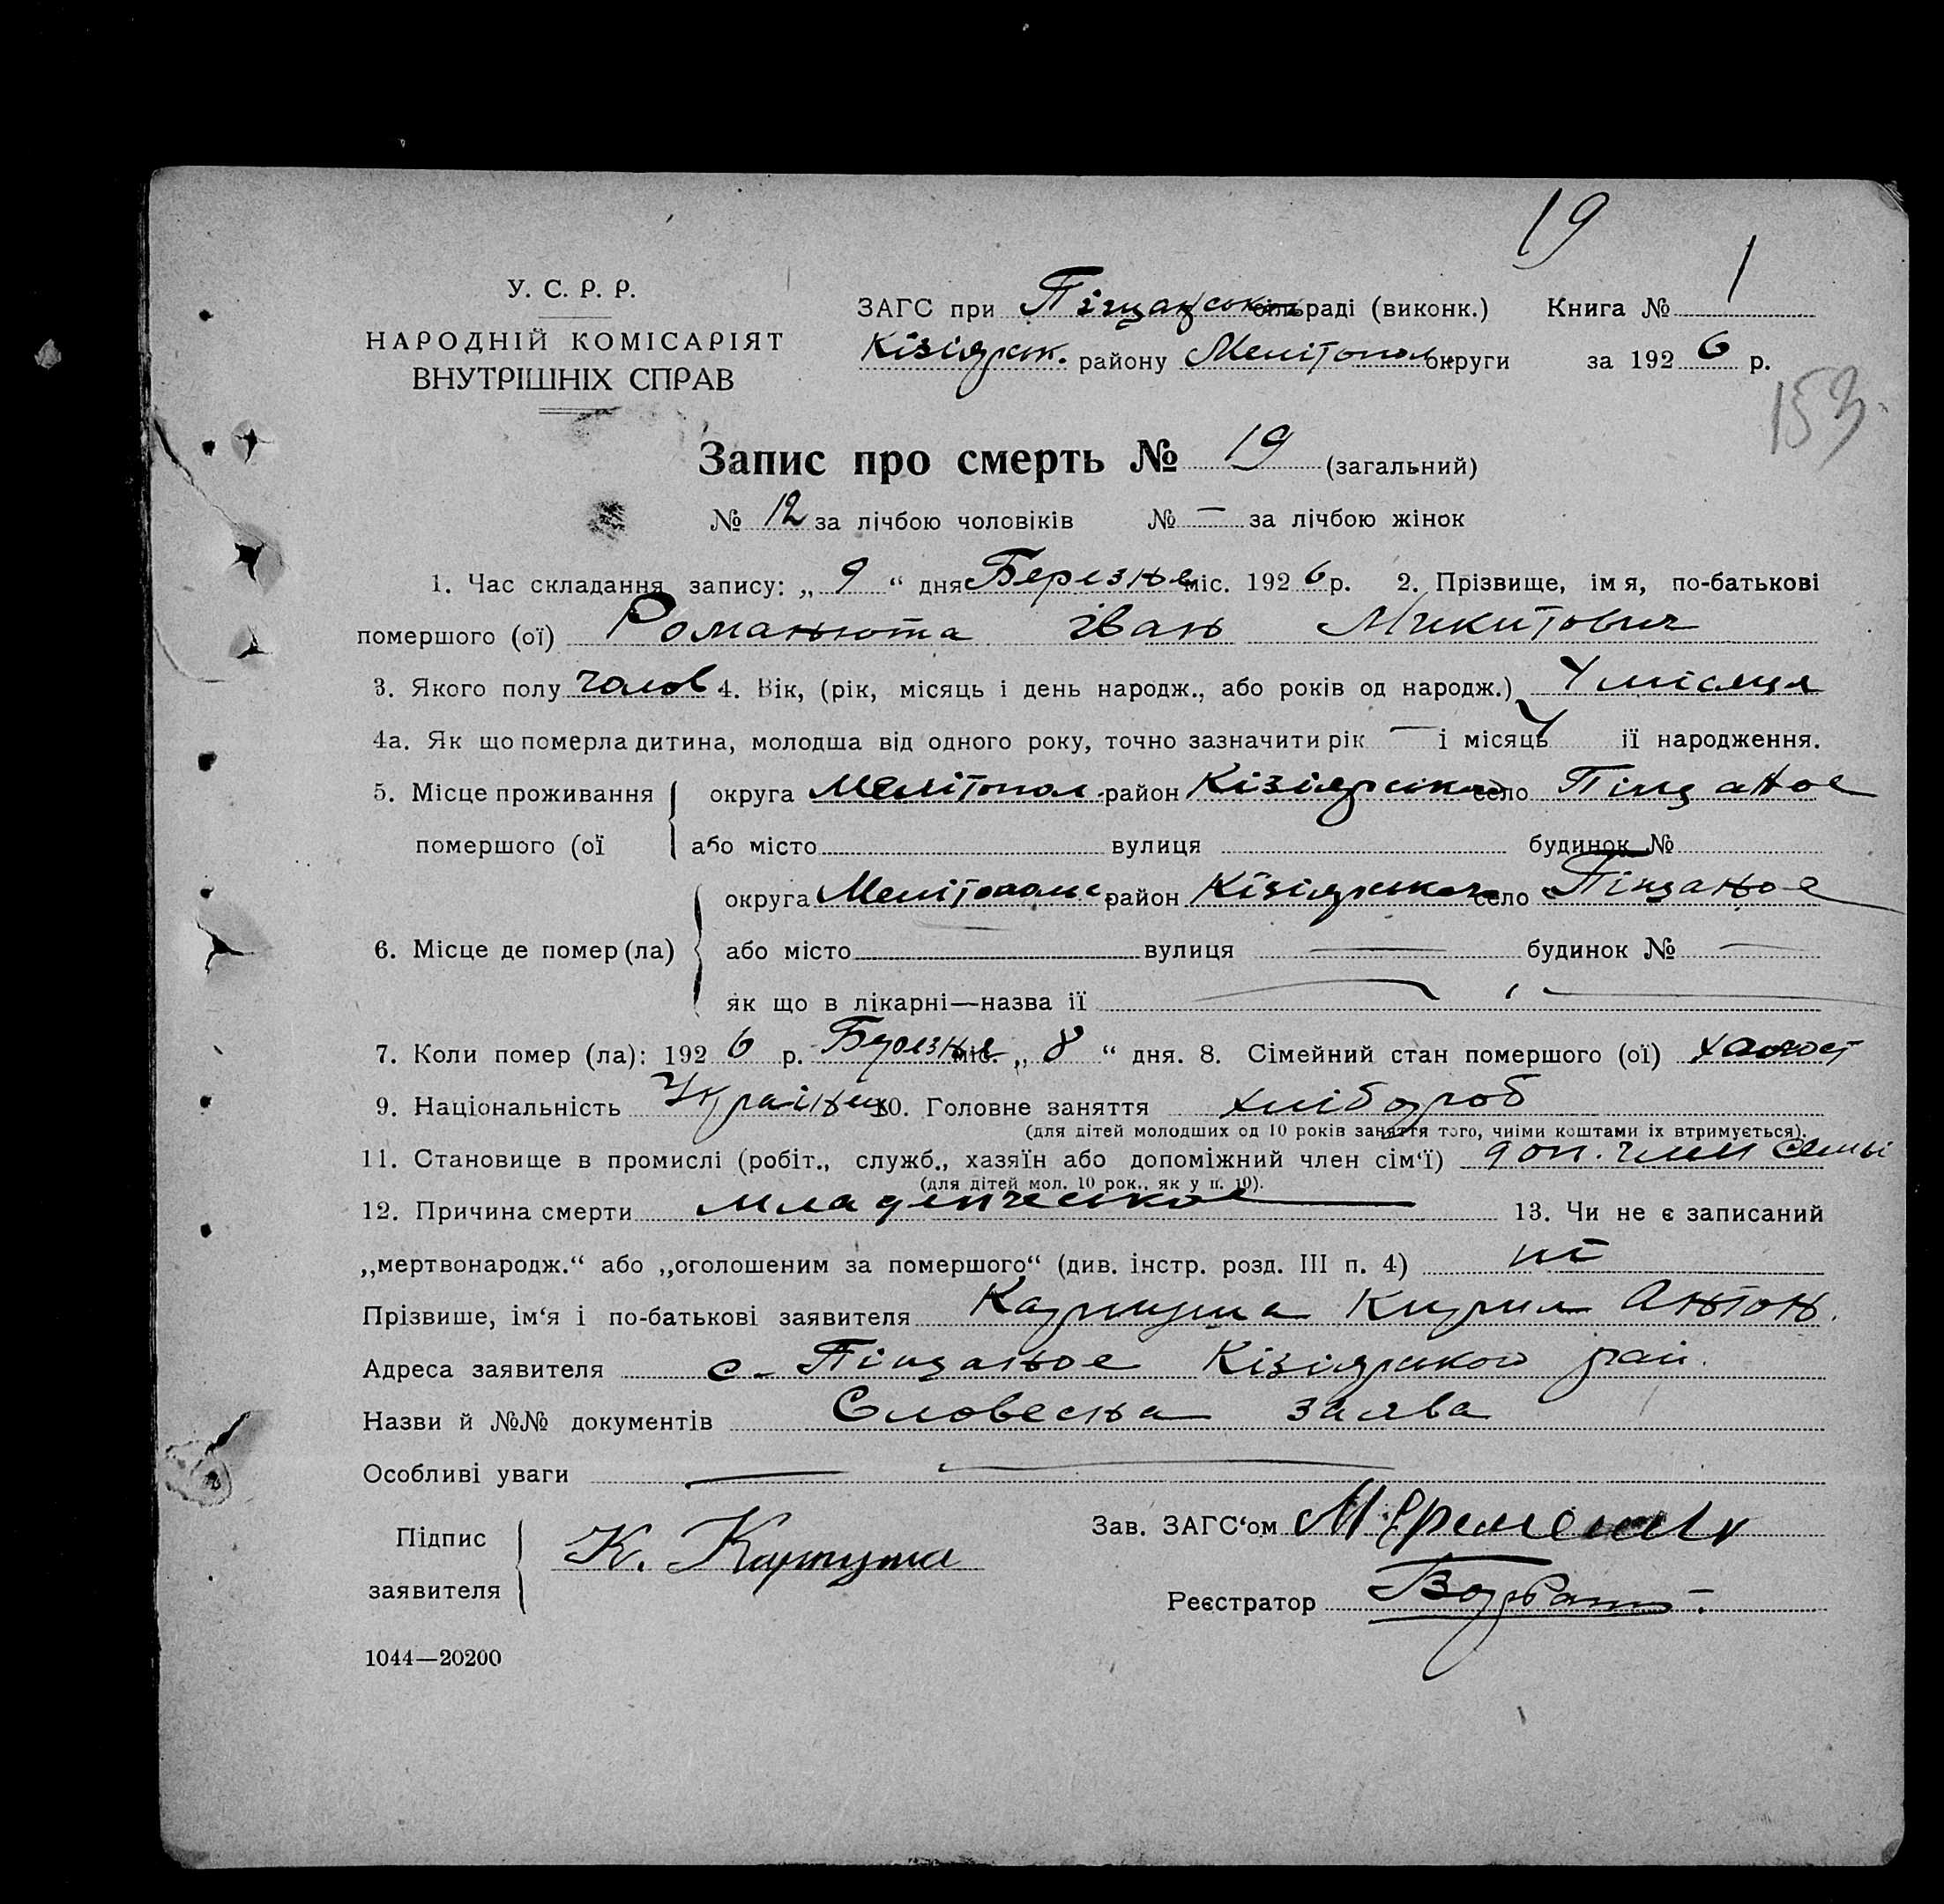 19
У. С. Р. Р.
НАРОДНІЙ КОМІСАРІЯТ
ВНУТРІШНІХ СПРАВ
ЗАГС при Піщанской сільраді (виконк.) Книга № 1
Кізіярск. району Мелітопол. округи за 1926 р.
153
Запис про смерть № 19 (загальний)
№ 12 за лічбою чоловіків № — за лічбою жінок
1. Час складання запису: „ 9 “ дня Березня міс. 1926 р. 2. Прізвище, імя, по-батькові
помершого (ої) Романюта Іван Микитович
3. Якого полу чолов 4. Вік, (рік, місяць і день народж., або років од народж.) 4 місяця
4а. Як що померла дитина, молодша від одного року, точно зазначити рік — і місяць 4 її народження.
5. Місце проживання округа Мелітопол. район Кізіярського село Піщаное
помершого (ої або місто вулиця будинок №
округа Мелітополь район Кізіярського село Піщаное
6. Місце де помер (ла) або місто вулиця — будинок № —
як що в лікарні—назва її —
7. Коли помер (ла): 1926 р. Березня міс. „ 8 “ дня. 8. Сімейний стан помершого (ої) холост
9. Національність Українец 10. Головне заняття хлібороб
(для дітей молодших од 10 років заняття того, чиїми коштами їх втримується).
11. Становище в промислі (робіт., служб., хазяїн або допоміжний член сім'ї) доп. член семьі
(для дітей мол. 10 рок., як у п. 10).
12. Причина смерти младенческое 13. Чи не є записаний
„мертвонародж.“ або „оголошеним за помершого“ (див. інстр. розд. III п. 4) ні
Прізвише, ім‘я і по-батькові заявителя Карпуша Кирил Антон.
Адреса заявителя с. Піщаное Кізіярского рай.
Назви й №№ документів Словесна заява
Особливі уваги —
Підпис
заявителя
К. Карпуша
Зав. ЗАГС‘ом
Реєстратор
1044—20200